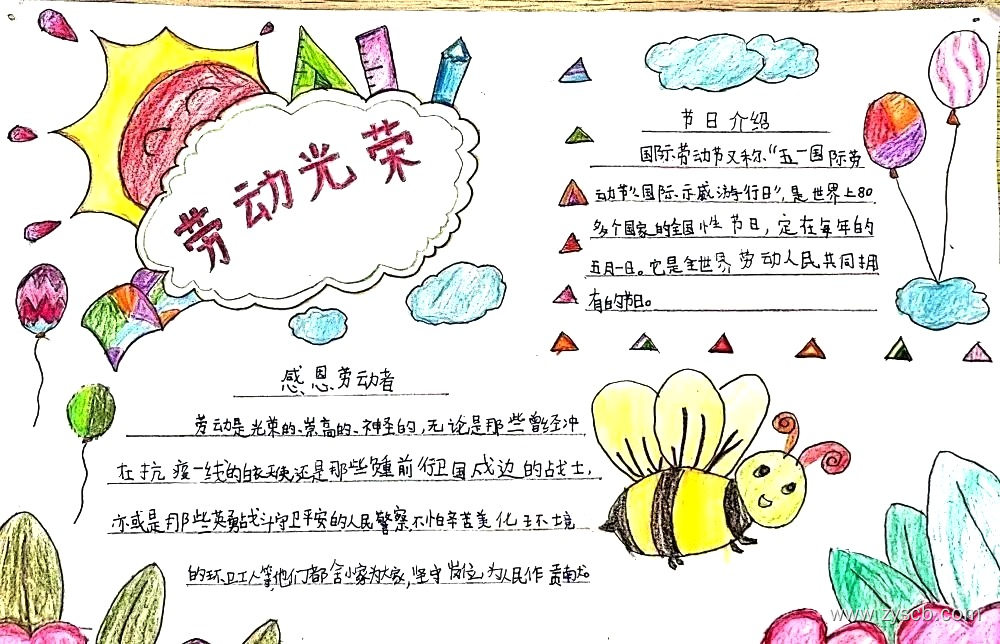 劳动光荣
节日介绍
国际劳动节又称“五一国际劳
动节”“国际示威游行日”，是世界上80
多个国家的全国性节日，定在每年的
五月一日。它是全世界劳动人民共同拥
有的节日。
感恩劳动者
劳动是光荣的、崇高的、神圣的，无论是那些曾经冲
在抗疫一线的白衣天使还是那些负重前行卫国戍边的战士，
亦或是那些英勇战斗守卫平安的人民警察，不怕辛苦美化环境
的环卫工人等，他们都舍小家为大家，坚守岗位，为人民作贡献。
www.zyscb.com